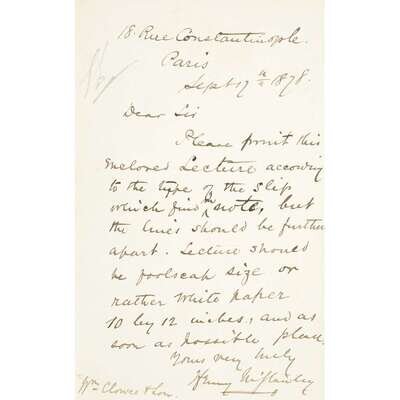 18. Rue Constantinople.
Paris
Sept 17th 1878.
Dear Sir
Please print this
enclosed Lecture according
to the type of the slip
which find in note, but
the lines should be further
apart. Lecture should
be foolscap size or
rather white paper
10 by 12 inches, and as
soon as possible please.
Yours very truly
Henry M Stanley
Wm Clowes & Son.